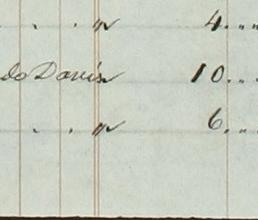 . . " 4. "
do Davis 10. "
. . " 6. "